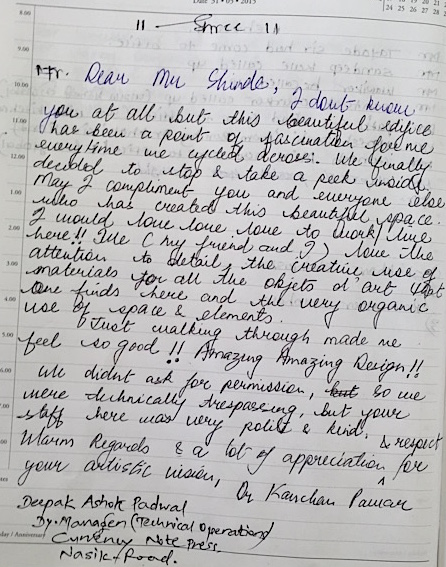 Date 31 • 03 • 2015
24 25 26 27 28
|| — Shree ||
8.00
Dear Mr Shinde, I dont know
10.00
you at all but this beautiful edifice
11.00
has been a point of fascination for me
everytime we cycled across. We finally
12.00
decided to stop & take a peek inside.
May I compliment you and everyone else
1.00
who has created this beautiful space.
I would love love love to work/live
2.00
here!! We (my friend and I) love the
attention to detail, the creative use of
3.00
materials for all the objets d'art that
one finds here and the very organic
4.00
use of space & elements.
Just walking through made me
5.00
feel so good!! Amazing Amazing Design!!
6.00
We didnt ask for permission, but so we
were technically trespassing, but your
7.00
staff here was very polite & kind.
& respect
Warm Regards & a lot of appreciation ^ for
your artistic vision, Dr Kanchan Pawar
Deepak Ashok Padwal
Dy. Manager (Technical Operation)
Currency Note Press
Nasik Road.